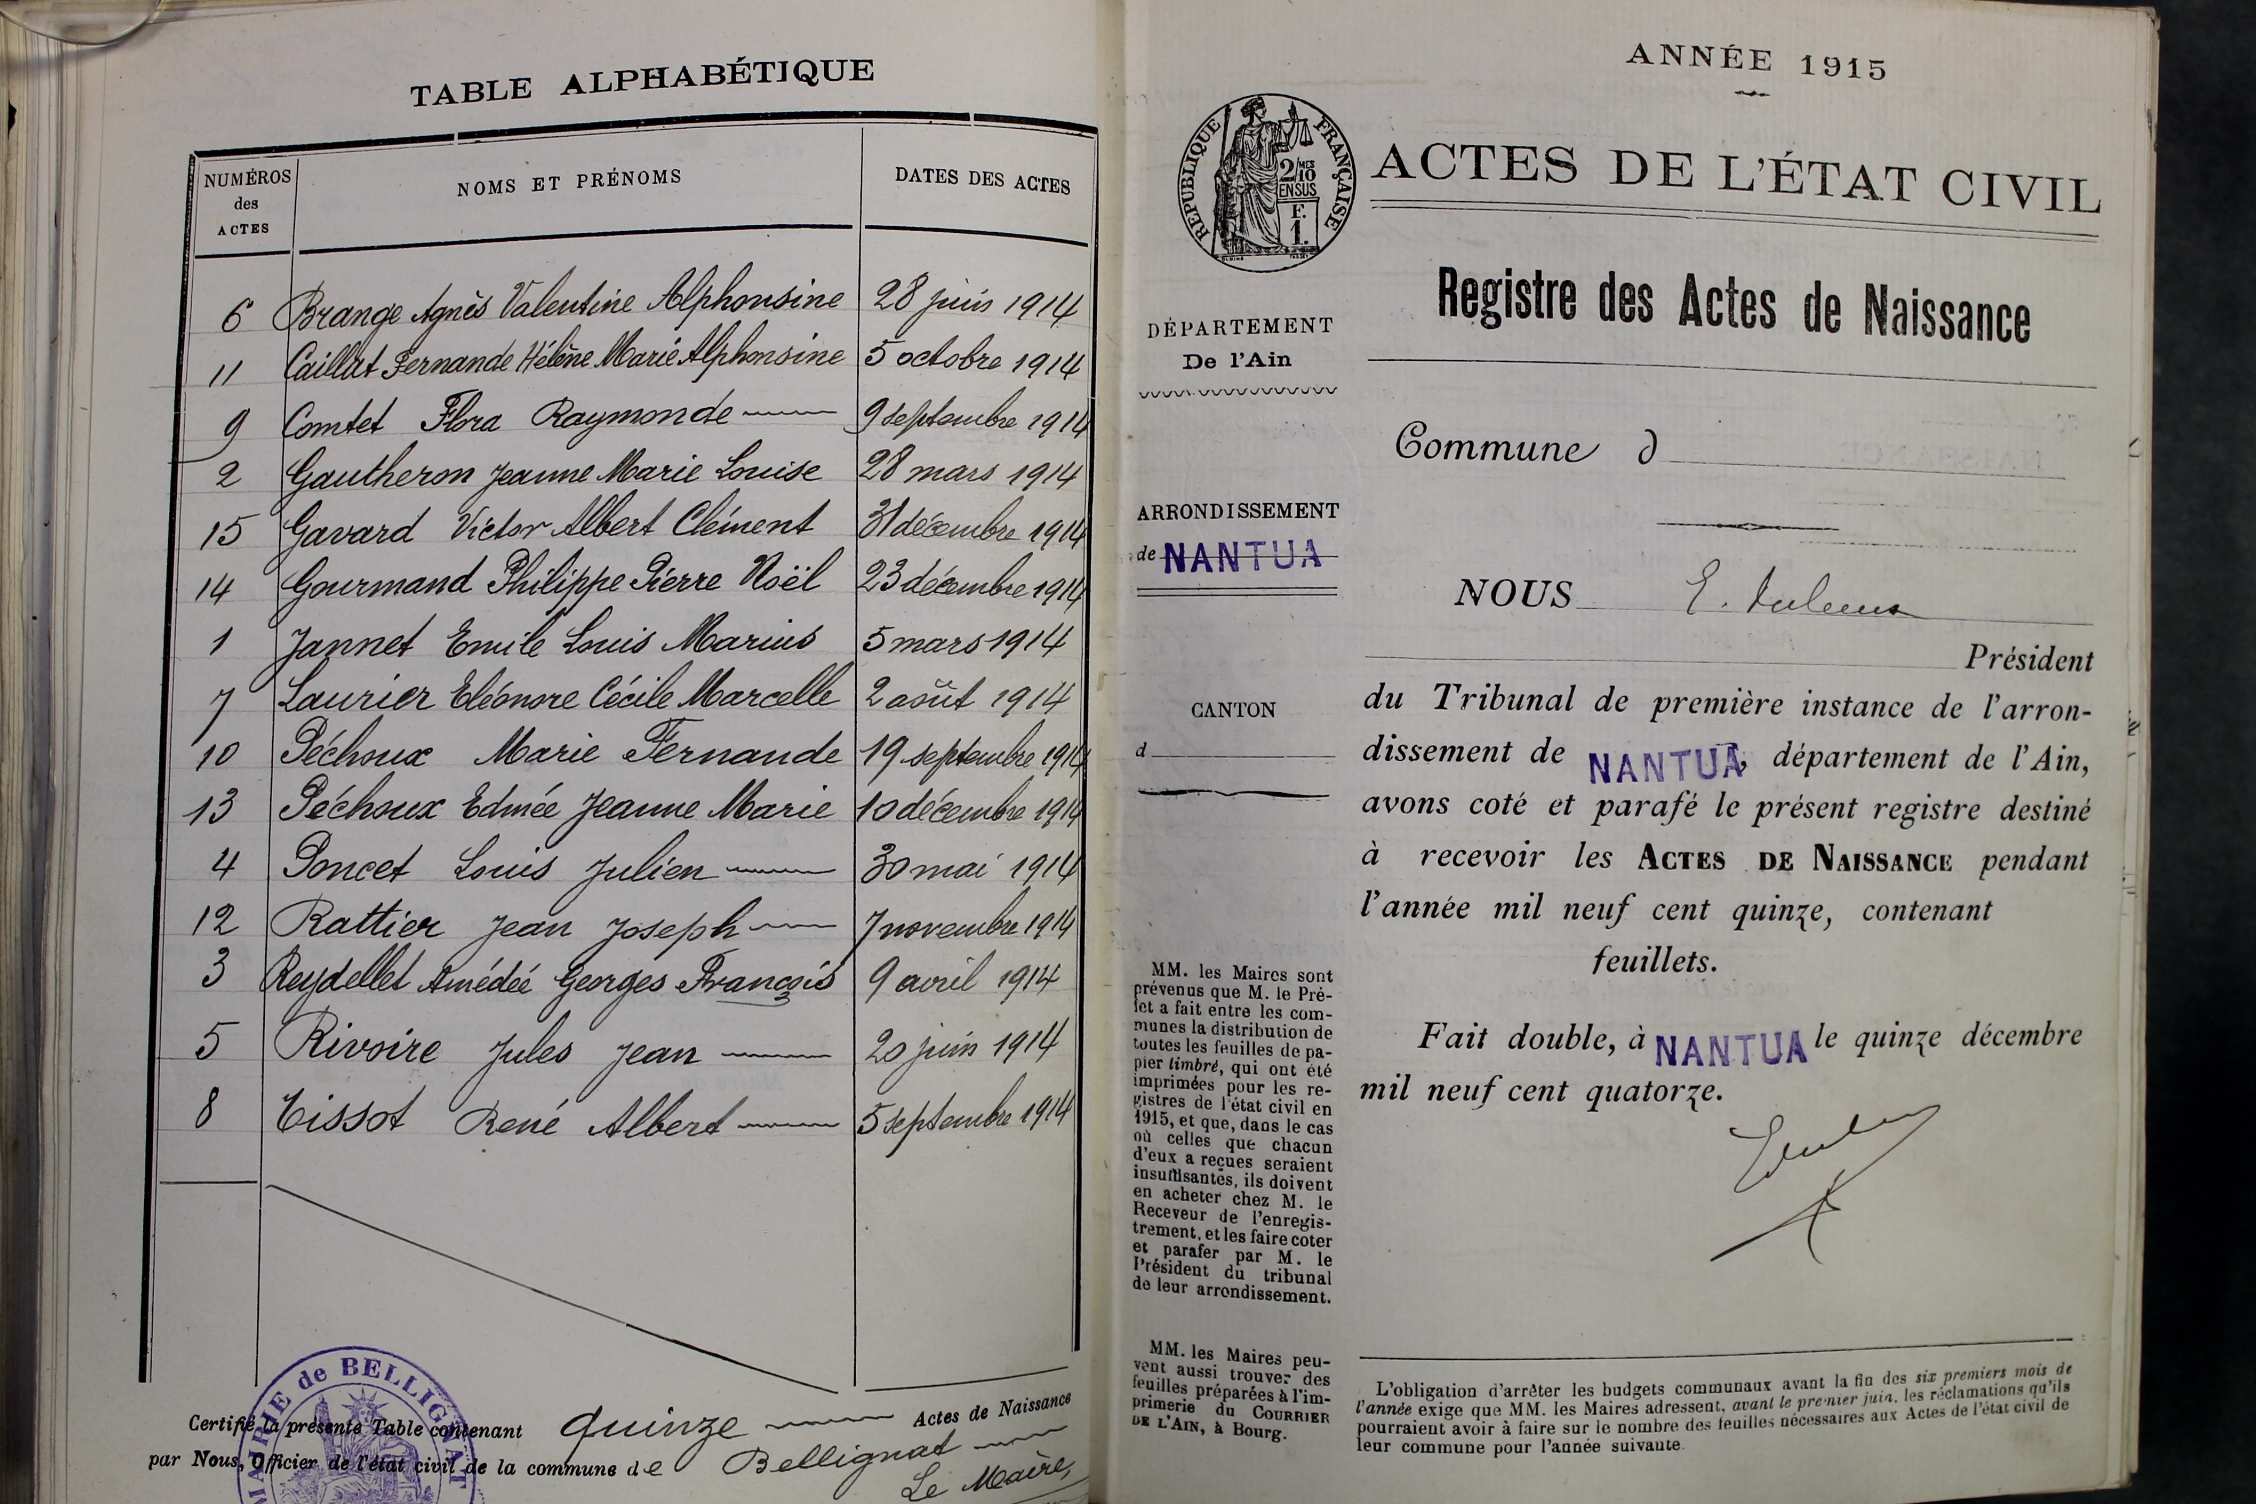 TABLE ALPHABÉTIQUE
NUMÉROS
des
ACTES
NOMS ET PRÉNOMS
DATES DES ACTES
6 Brange Agnès Valentine Alphonsine 28 juin 1914
11 Caillat Fernande Hélène Marie Alphonsine 5 octobre 1914
9 Comtet Flora Raymonde 9 septembre 1914
2 Gautheron Jeanne Marie Louise 28 mars 1914
15 Gavard Victor Albert Clément 31 décembre 1914
14 Gourmand Philippe Pierre Noël 23 décembre 1914
1 Jannet Emile Louis Marius 5 mars 1914
7 Laurier Eléonore Cécile Marcelle 2 août 1914
10 Péchoux Marie Fernande 19 septembre 1914
13 Péchoux Edmée Jeanne Marie 10 décembre 1914
4 Poncet Louis Julien 30 mai 1914
12 Rattier Jean Joseph 7 novembre 1914
3 Reydellet Amédée Georges François 9 avril 1914
5 Rivoire Jules Jean 20 juin 1914
8 Tissot René Albert 5 septembre 1914
MAIRIE de BELLIGNAT
Certifié la présente Table contenant quinze Actes de Naissance
par Nous, Officier de l'état civil de la commune de Bellignat
Le Maire,
ANNÉE 1915
RÉPUBLIQUE FRANÇAISE
2/10 MES
EN SUS
F.
1.
ACTES DE L'ÉTAT CIVIL
Registre des Actes de Naissance
DÉPARTEMENT
De l'Ain
ARRONDISSEMENT
de NANTUA
CANTON
d
MM. les Maires sont
prévenus que M. le Pré-
fet a fait entre les com-
munes la distribution de
toutes les feuilles de pa-
pier timbré, qui ont été
imprimées pour les re-
gistres de l'état civil en
1915, et que, dans le cas
où celles que chacun
d'eux a reçues seraient
insuffisantes, ils doivent
en acheter chez M. le
Receveur de l'enregis-
trement, et les faire coter
et parafer par M. le
Président du tribunal
de leur arrondissement.
MM. les Maires peu-
vent aussi trouver des
feuilles préparées à l'im-
primerie du COURRIER
DE L'AIN, à Bourg.
Commune d
NOUS E.
Président
du Tribunal de première instance de l'arron-
dissement de NANTUA, département de l'Ain,
avons coté et parafé le présent registre destiné
à recevoir les ACTES DE NAISSANCE pendant
l'année mil neuf cent quinze, contenant
feuillets.
Fait double, à NANTUA le quinze décembre
mil neuf cent quatorze.
L'obligation d'arrêter les budgets communaux avant la fin des six premiers mois de
l'année exige que MM. les Maires adressent, avant le premier juin, les réclamations qu'ils
pourraient avoir à faire sur le nombre des feuilles nécessaires aux Actes de l'état civil de
leur commune pour l'année suivante.